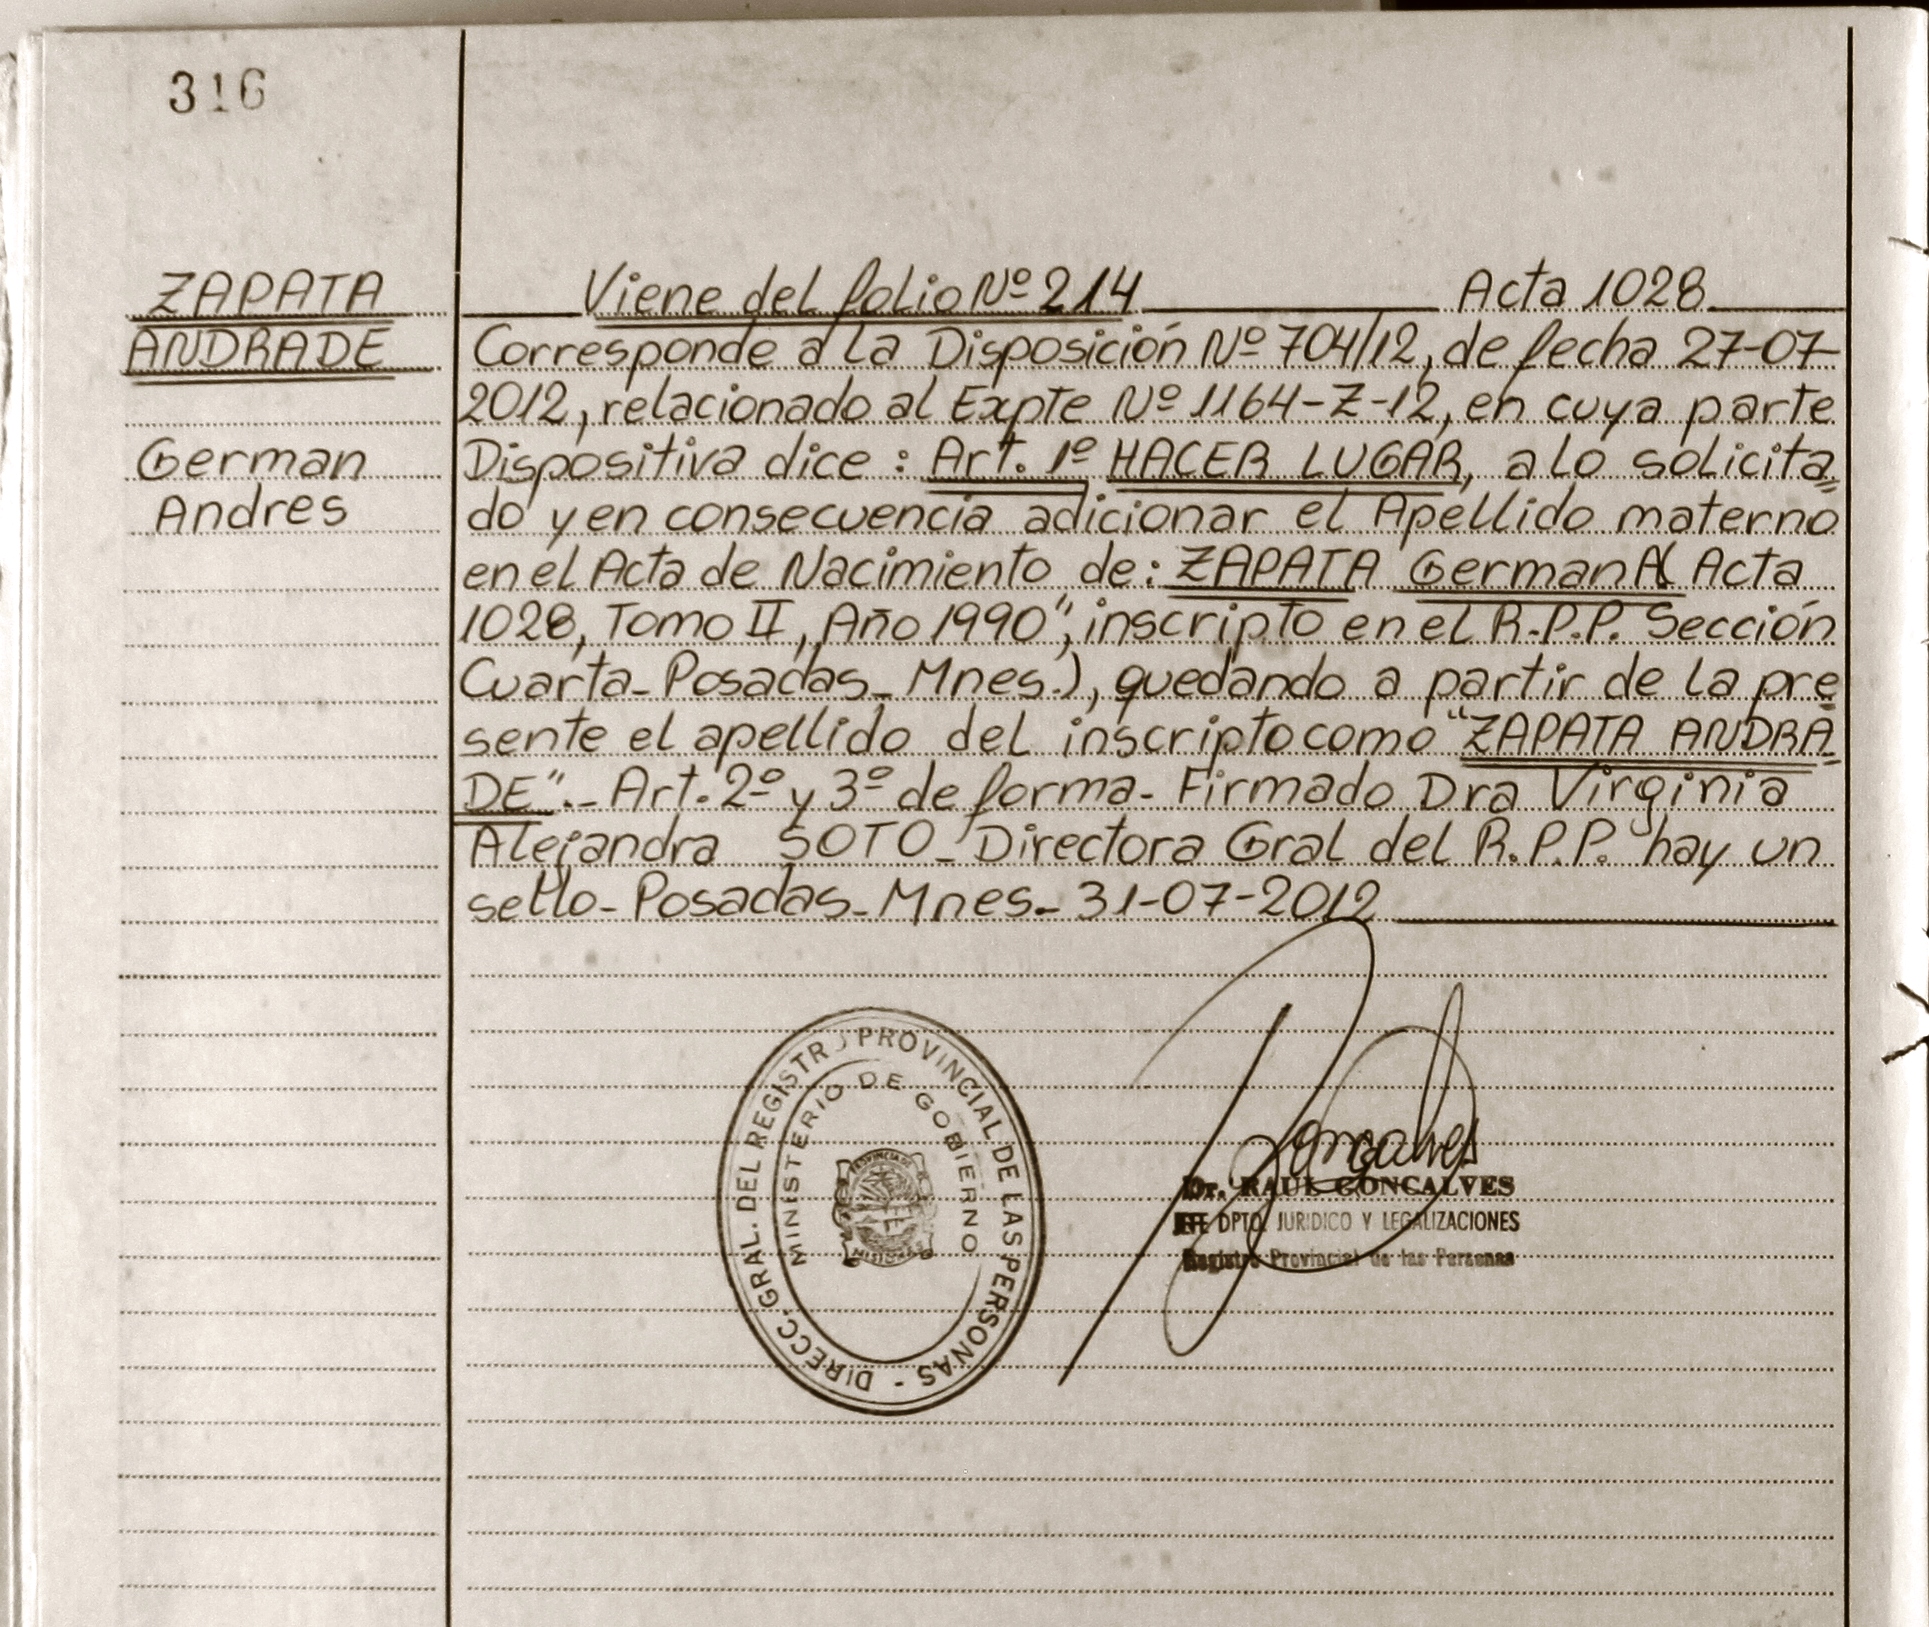 316
ZAPATA
ANDRADE
German
Andres
Viene del folio Nº 214 Acta 1028
Corresponde a la Disposición Nº 704/12, de fecha 27-07-
2012, relacionado al Expte Nº 1164-Z-12, en cuya parte
Dispositiva dice: Art. 1º HACER LUGAR, a lo solicita
do y en consecuencia adicionar el Apellido materno
en el Acta de Nacimiento de: ZAPATA German A( Acta
1028, Tomo II, Año 1990", inscripto en el R.P.P. Sección
Cuarta-Posadas-Mnes.), quedando a partir de la pre
sente el apellido del inscripto como "ZAPATA ANDRA
DE".- Art. 2º y 3º de forma- Firmado Dra Virginia
Alejandra SOTO- Directora Gral del R.P.P. hay un
sello-Posadas-Mnes- 31-07-2012
DIRECC. GRAL. DEL REGISTRO PROVINCIAL DE LAS PERSONAS -
MINISTERIO DE GOBIERNO
PROVINCIA DE
MISIONES
Goncalves
Dr. RAUL GONCALVES
JEFE DPTO. JURIDICO Y LEGALIZACIONES
Registro Provincial de las Personas